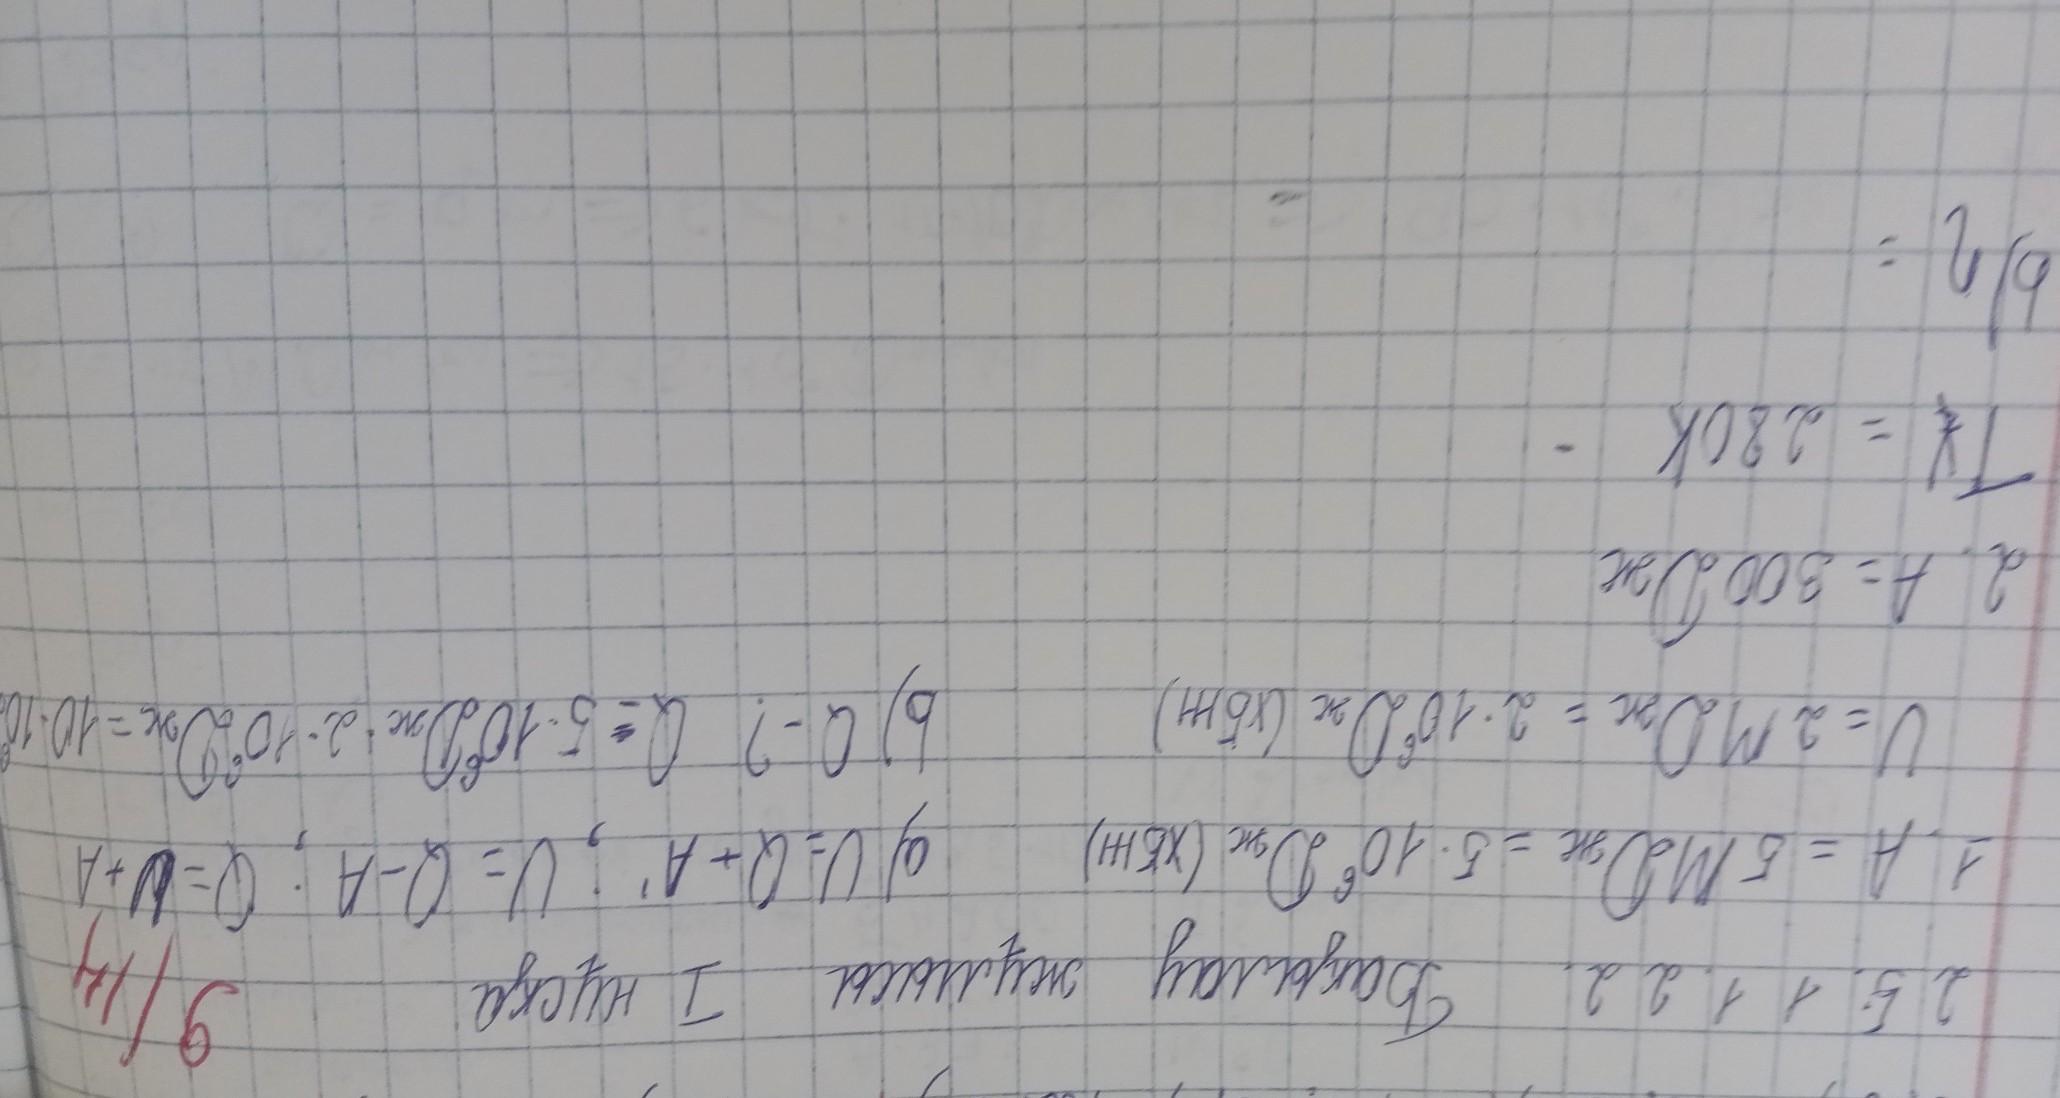 2 5. 1 1. 2 2. Бақылау жұмысы I нұсқа 9/14
1. A = 5 MДж = 5·10⁶Дж (ХБЖ) a) U=Q+A'; U=Q-A; Q=U+A
U=2 MДж = 2·10⁶Дж (ХБЖ) b) Q-? Q=5·10⁶Дж·2·10⁶Дж=10·10⁶
2. A=300Дж
Tₓ = 280K -
b) η =